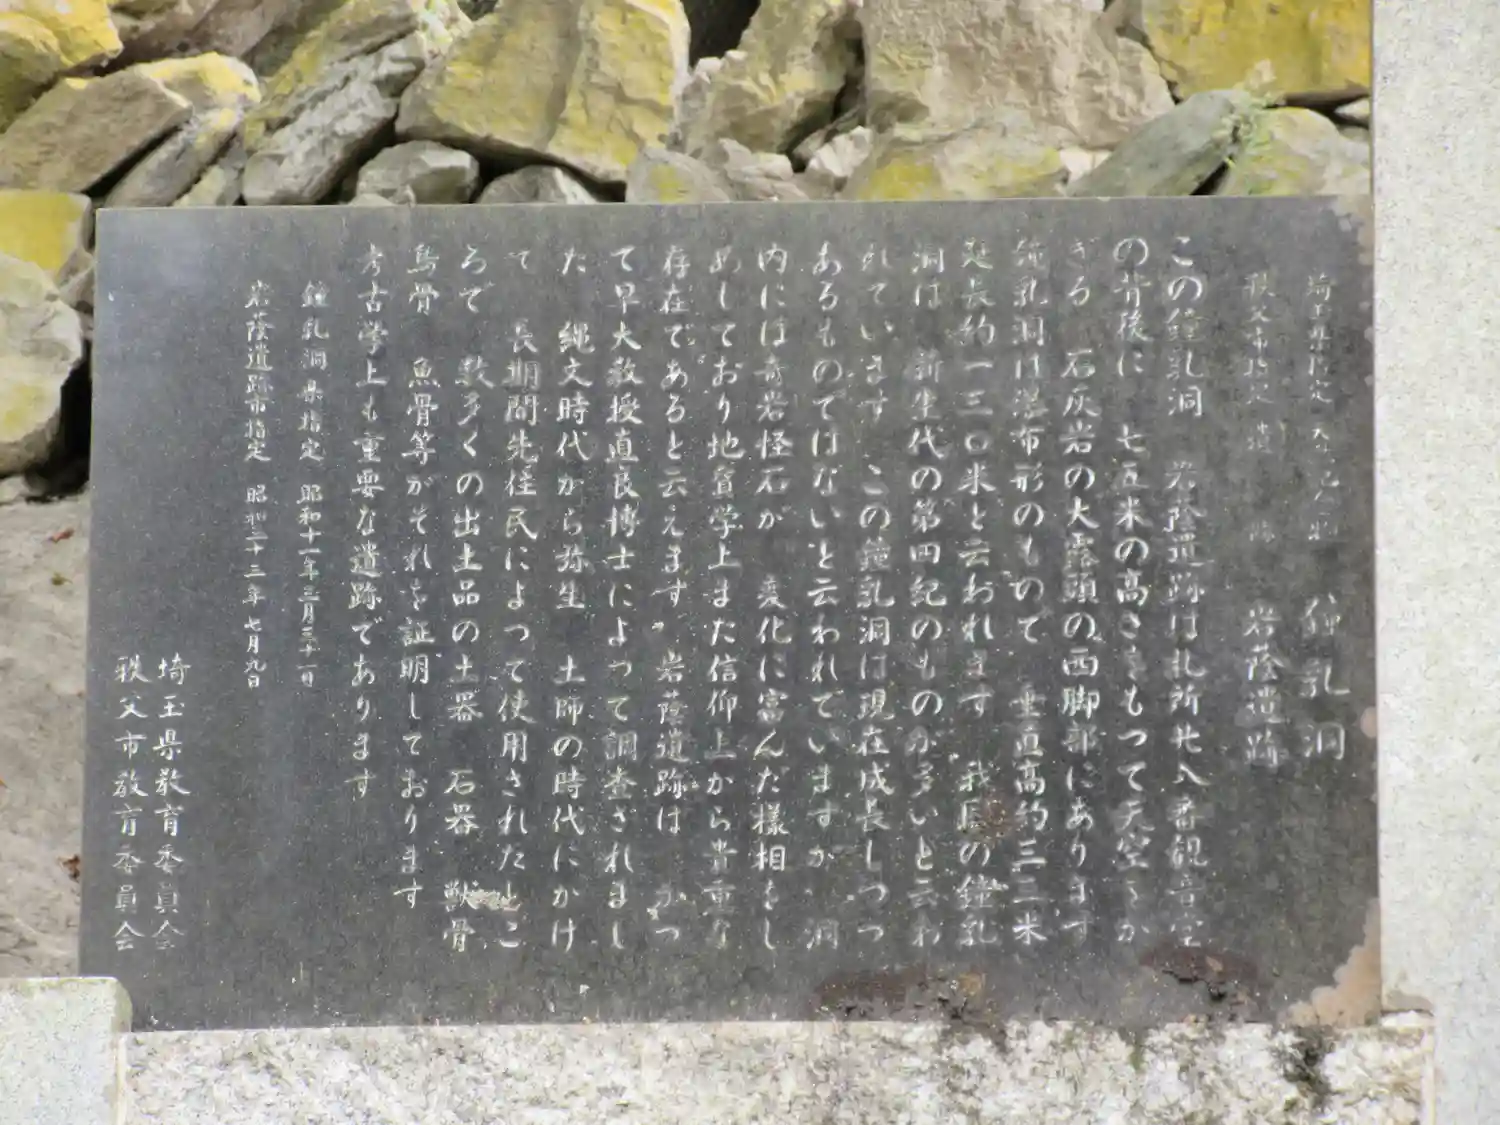 埼玉県指定天然記念物 鐘乳洞
秩父市指定 遺跡 岩蔭遺跡
この鐘乳洞 岩蔭遺跡は札所廿八番観音堂
の背後に 七五米の高さをもつて天空をか
ぎる 石灰岩の大露頭の西脚部にあります
鐘乳洞は瀑布形のもので 垂直高約三三米
延長約一三〇米と云われます 我国の鐘乳
洞は 新生代の第四紀のものが多いと云わ
れています この鐘乳洞は現在成長しつつ
あるものではないと云われていますが 洞
内には奇岩怪石が 変化に富んだ様相をし
めしており地質学上また信仰上から貴重な
存在であると云えます 岩蔭遺跡は かつ
て早大教授直良博士によって調査されまし
た 縄文時代から弥生 土師の時代にかけ
て 長期間先住民によつて使用されたとこ
ろで 数多くの出土品の土器 石器 獣骨
鳥骨 魚骨等がそれを証明しております
考古学上も重要な遺跡であります
鐘乳洞県指定 昭和十一年三月三十一日
岩蔭遺跡市指定 昭和三十三年七月九日
埼玉県教育委員会
秩父市教育委員会